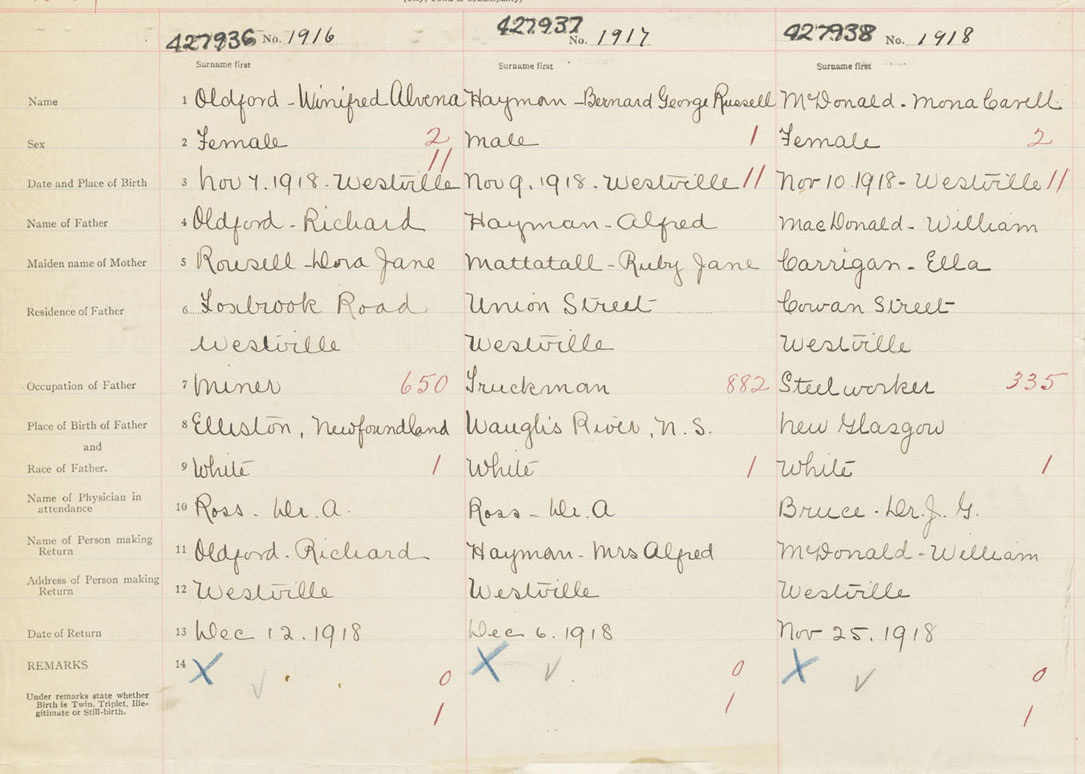 427936 No. 1916 427937 No. 1917 427938 No. 1918
Surname first Surname first Surname first
Name 1 Oldford - Winifred Alvena Hayman - Bernard George Russell McDonald - Mona Cavell
Sex 2 Female 2 Male 1 Female 2
11
Date and Place of Birth 3 Nov 7. 1918 - Westville Nov 9, 1918 - Westville 11 Nov 10 1918 - Westville 11
Name of Father 4 Oldford - Richard Hayman - Alfred MacDonald - William
Maiden name of Mother 5 Rousell - Dora Jane Mattatall - Ruby Jane Carrigan - Ella
Residence of Father 6 Foxbrook Road Union Street Cowan Street
Westville Westville Westville
Occupation of Father 7 Miner 650 Truckman 882 Steelworker 335
Place of Birth of Father 8 Elliston, Newfoundland Waughs River, N.S. New Glasgow
and
Race of Father. 9 White 1 White 1 White 1
Name of Physician in
attendance 10 Ross - Dr. A. Ross - Dr. A Bruce - Dr. J. G.
Name of Person making
Return 11 Oldford - Richard Hayman - Mrs Alfred McDonald - William
Address of Person making
Return 12 Westville Westville Westville
Date of Return 13 Dec 12. 1918 Dec 6. 1918 Nov 25. 1918
REMARKS 14 X X X
0 0 0
Under remarks state whether
Birth is Twin, Triplet, Ille-
gitimate or Still-birth. 1 1 1